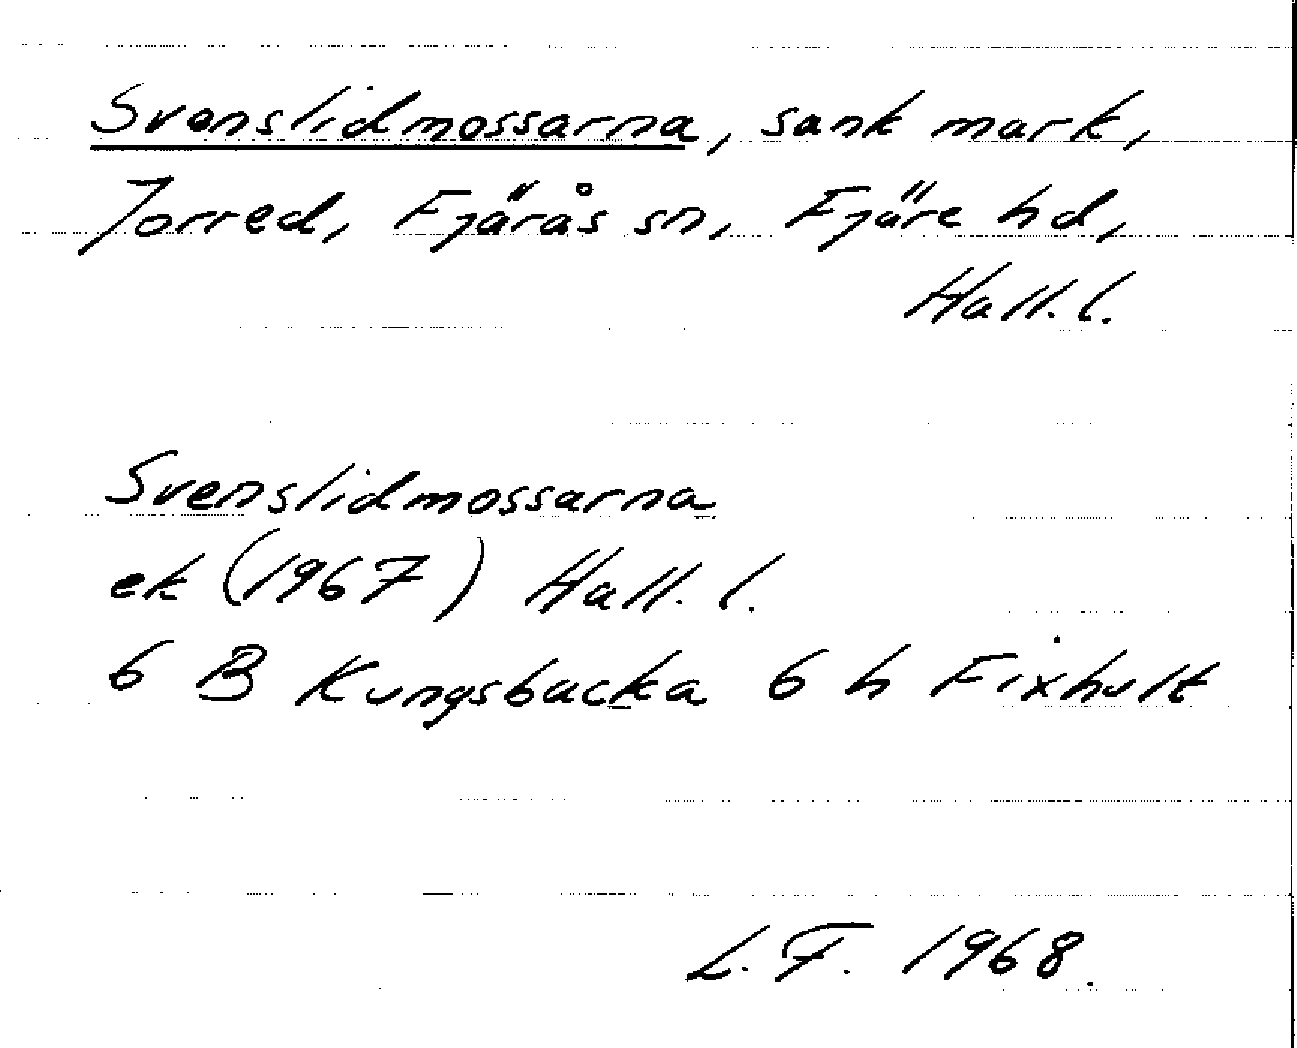 Svenslidmossarna, sank mark,
Jorred, Fjärås sn, Fjäre hd,
Hall. l.
Svenslidmossarna
ek (1967) Hall. l.
6 B Kungsbacka 6 h Fixhult
L. F. 1968.